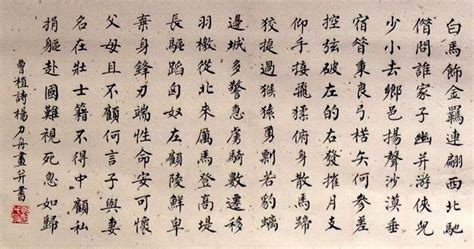 白馬飾金羈連翩西北馳
借問誰家子幽并游俠兒
少小去鄉邑揚聲沙漠垂
宿昔秉良弓楛矢何參差
控弦破左的右發摧月支
仰手接飛猱俯身散馬蹄
狡捷過猴猿勇剽若豹螭
邊城多警急虜騎數遷移
羽檄從北來厲馬登高堤
長驅蹈匈奴左顧陵鮮卑
棄身鋒刃端性命安可懷
父母且不顧何言子與妻
名在壯士籍不得中顧私
捐軀赴國難視死忽如歸
曹植詩楊刀舟畫并書